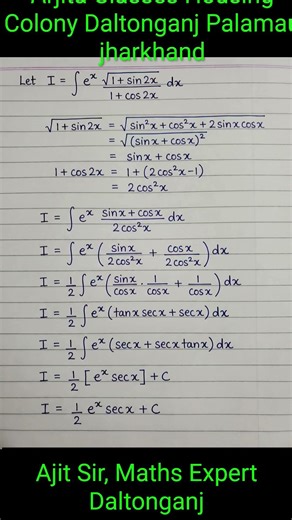 Arjita Classes Housing
Colony Daltonganj Palamau
jharkhand
Let I = ∫ eˣ √(1 + sin2x) / (1 + cos2x) dx
√(1 + sin2x) = √(sin²x + cos²x + 2 sinx cosx)
= √((sinx + cosx)²)
= sinx + cosx
1 + cos2x = 1 + (2cos²x − 1)
= 2cos²x
I = ∫ eˣ (sinx + cosx) / (2cos²x) dx
I = ∫ eˣ ( sinx / 2cos²x + cosx / 2cos²x ) dx
I = 1/2 ∫ eˣ ( sinx / cosx · 1 / cosx + 1 / cosx ) dx
I = 1/2 ∫ eˣ (tanx secx + secx) dx
I = 1/2 ∫ eˣ (secx + secx tanx) dx
I = 1/2 [ eˣ secx ] + C
I = 1/2 eˣ secx + C
Ajit Sir, Maths Expert
Daltonganj